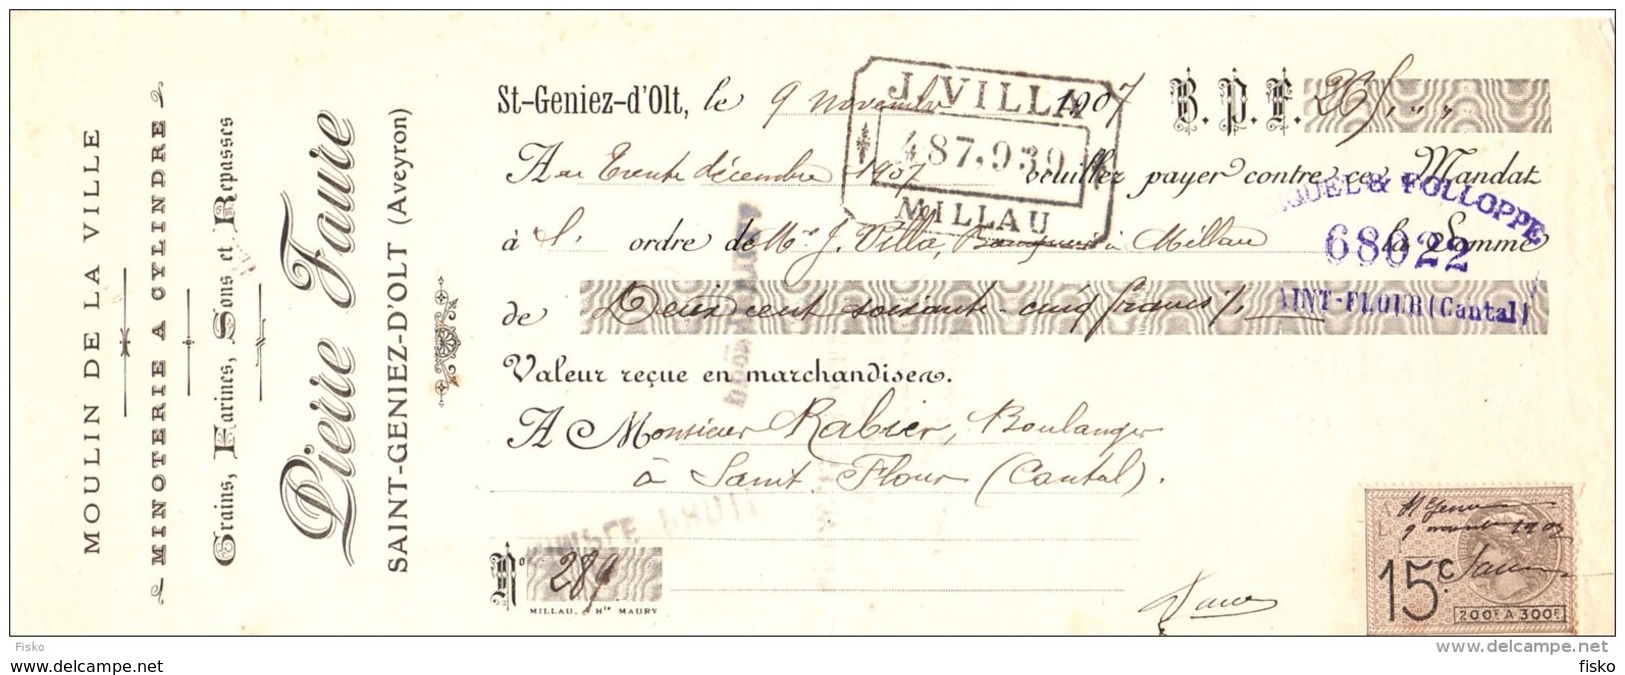 MOULIN DE LA VILLE
MINOTERIE A CYLINDRE
Grains, Farines, Sons et Repasses
Pierre Faure
SAINT-GENIEZ-D'OLT (Aveyron)
St-Geniez-d'Olt, le 9 novembre 1907 B. P. F. 265, " "
J. VILLA
487,939
MILLAU
Au trente décembre 1907 veuillez payer contre ce Mandat
à l' ordre de Mr J. Villa, Banquier à Millau la Somme
& FOLLOPPE
68022
AINT-FLOUR (Cantal)
de Deux cent soixante cinq francs
Valeur reçue en marchandises.
A Monsieur Rabier, Boulanger
à Saint Flour (Cantal).
No 289
MILLAU. Hte MAURY
Faure
St Geniez
9 novembre 1907
Faure
15c
200F A 300F
fisko
delcampe.net
www.delcampe.net
fisko